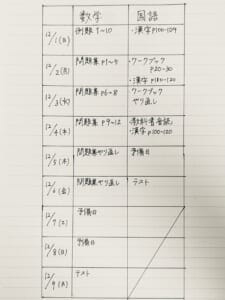 数学 国語
12/1(日) 例題 7～10 ・漢字 p100-109
12/2(月) 問題集 p1～5 ・ワークブック
p20-30
・漢字 p110-120
12/3(火) 問題集 p6～8 ワークブック
やり直し
12/4(水) 問題集 p9～12 ・教科書音読
・漢字 p100-120
12/5(木) 問題集やり直し 予備日
12/6(金) 問題集やり直し テスト
12/7(土) 予備日
12/8(日) 予備日
12/9(月) テスト